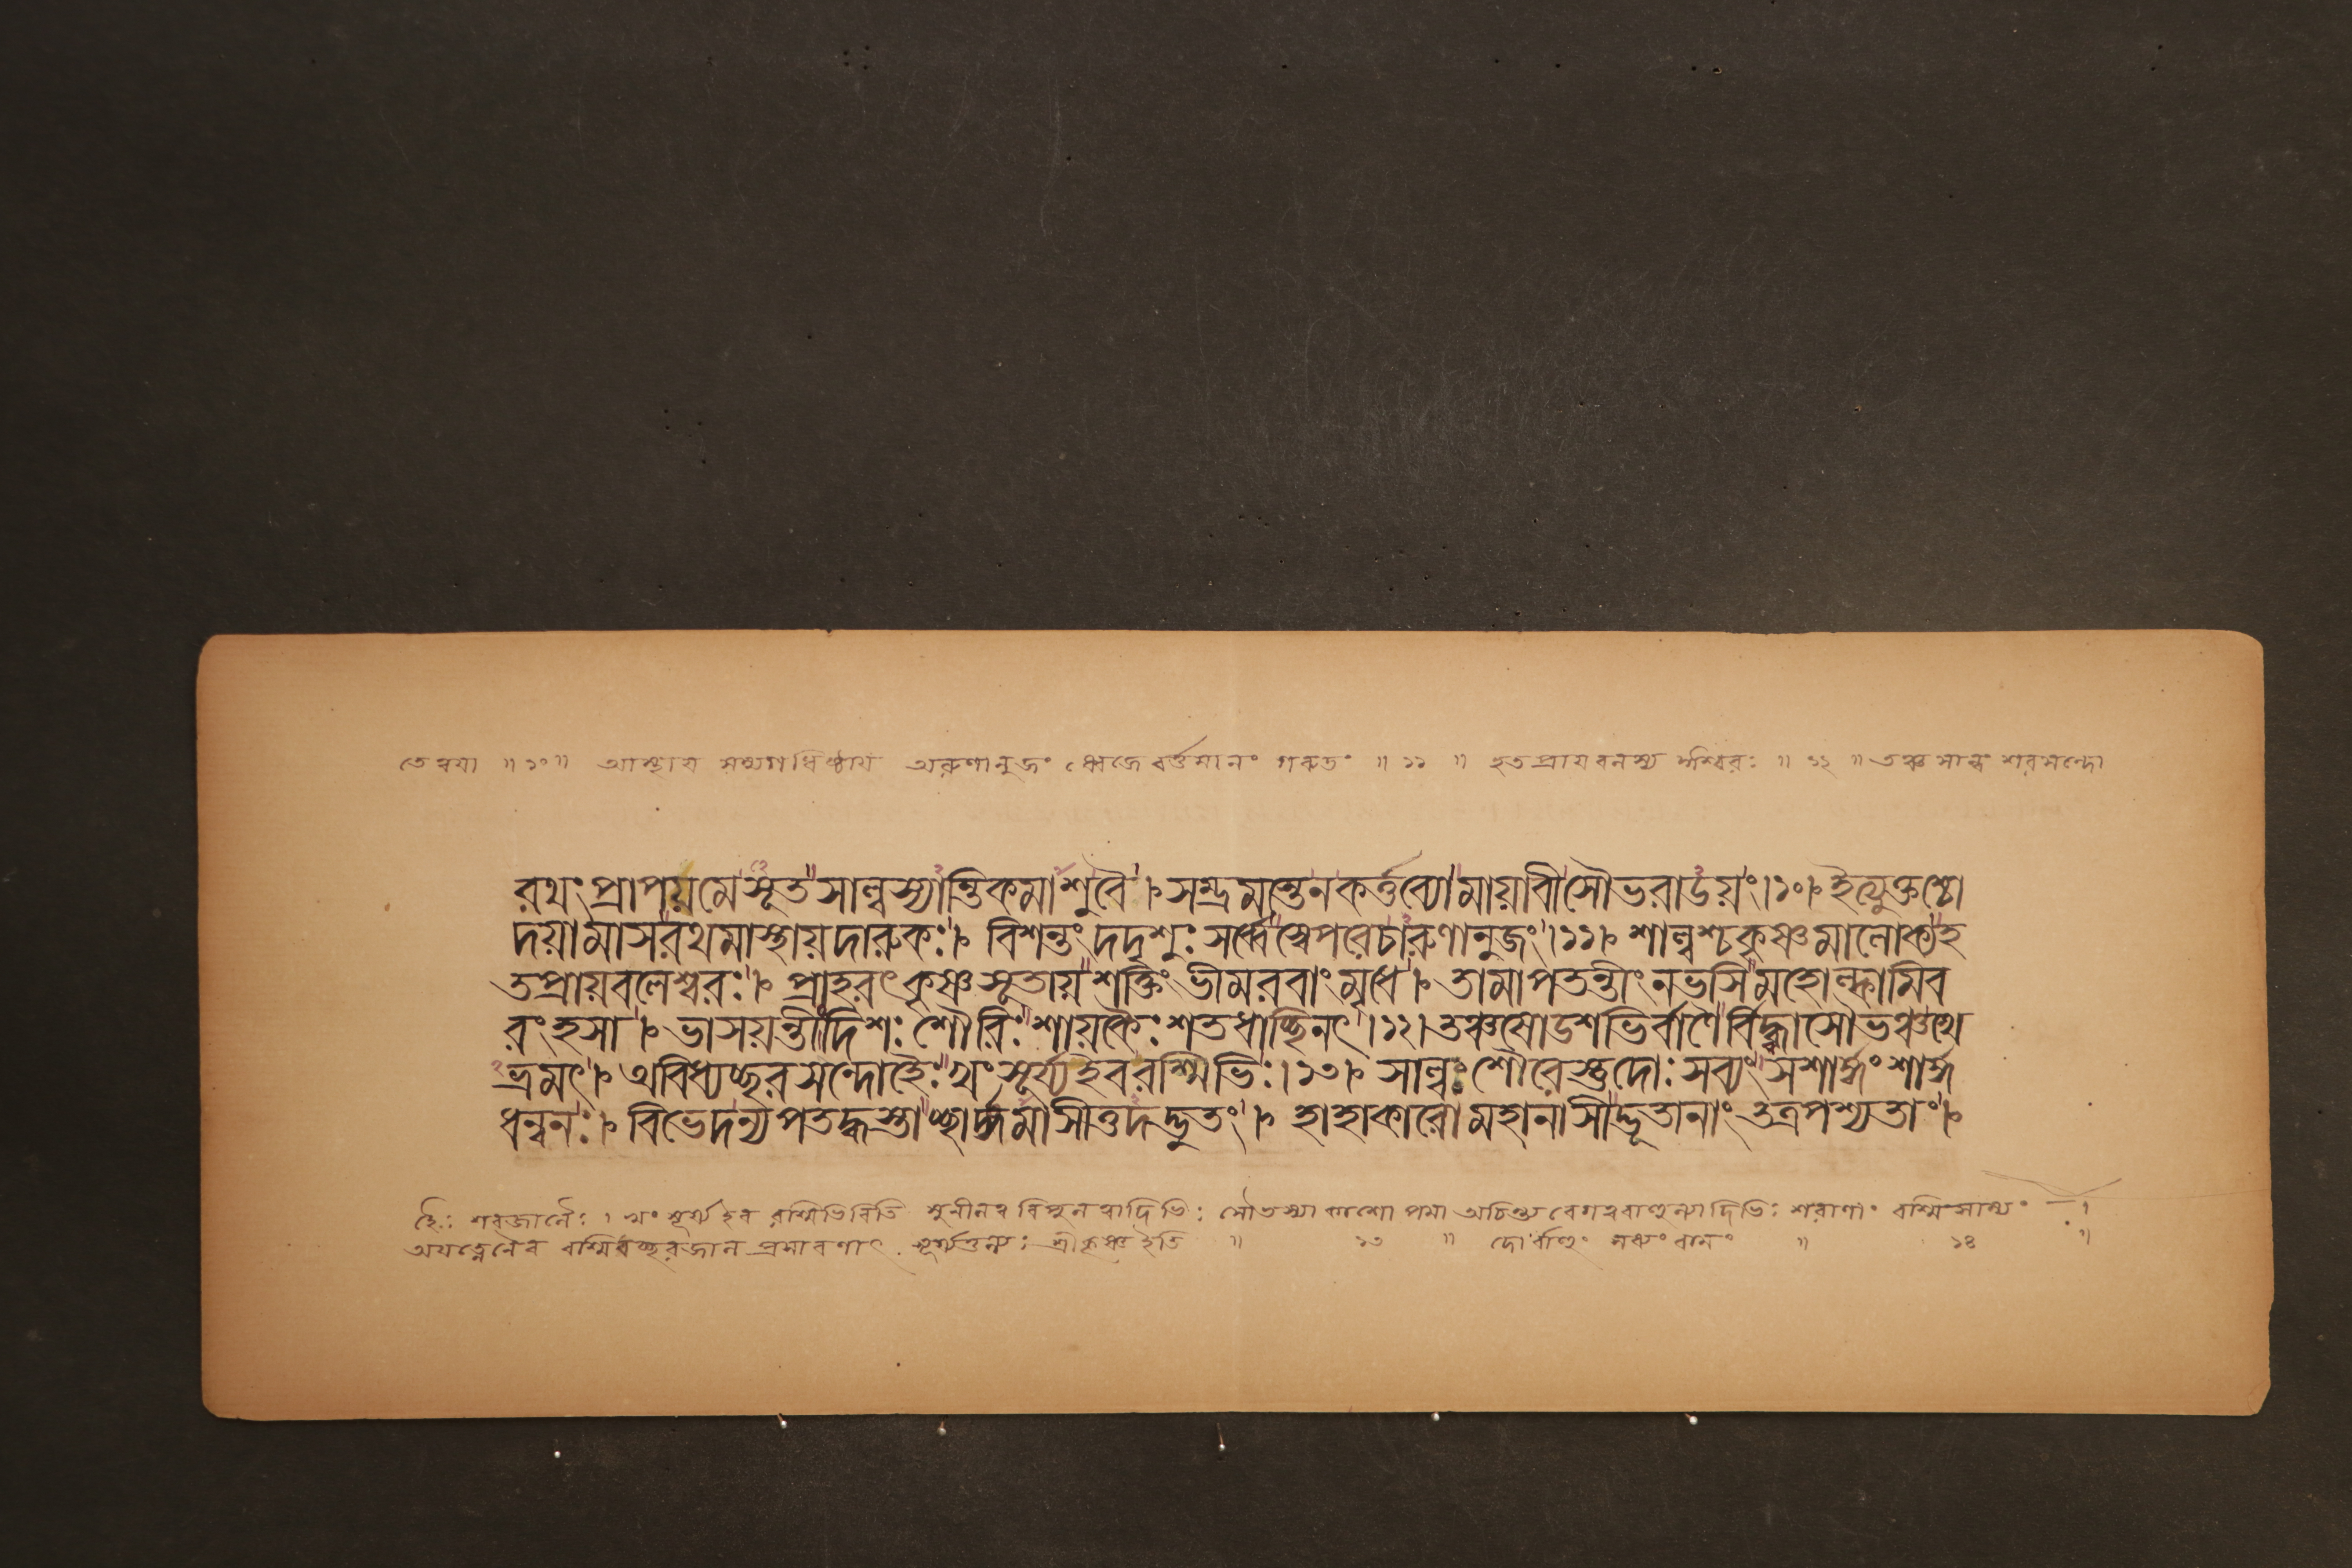 তে ত্বয়া ॥ ১০ ॥ আস্থায় অধিষ্ঠায় অরুণানুজং ধ্বজে বর্ত্তমানং গরুডং ॥ ১১ ॥ হতপ্রায়বলস্য ঈশ্বরঃ ॥ ১২ ॥ তঞ্চ সাল্বং শরসন্দো
রথং প্রাপয় মে সূত সাল্বস্যান্তিকমাশু বৈ । সম্ভ্রমস্তে ন কর্ত্তব্যো মায়াবী সৌভরাডয়ং । ১০ । ইত্যুক্তশ্চো
দয়ামাস রথমাস্থায় দারুকঃ । বিশন্তং দদৃশুঃ সর্ব্বে স্বে পরে চারুণানুজং । ১১ । শাল্বশ্চ কৃষ্ণমালোক্য হ
তপ্রায়বলেশ্বরঃ । প্রাহরৎ কৃষ্ণসূতায় শক্তিং ভীমরবাং মৃধে । তামাপতন্তীং নভসি মহোল্কামিব
রংহসা । ভাসয়ন্তীং দিশঃ শৌরিঃ শায়কৈঃ শতধাচ্ছিনৎ । ১২ । তঞ্চ ষোডশভির্বাণৈর্বিদ্ধ্বা সৌভঞ্চ খে
ভ্রমৎ । অবিধ্যচ্ছরসন্দোহৈঃ খং সূর্য্য ইব রশ্মিভিঃ । ১৩ । সাল্বঃ শৌরেস্তু দোঃ সব্যং সশার্ঙ্গং শার্ঙ্গ
ধন্বনঃ । বিভেদ ন্যপতদ্ধস্তাচ্ছার্ঙ্গমাসীত্তদদ্ভুতং । হাহাকারো মহানাসীদ্ভূতানাং তত্র পশ্যতাং ।
হৈঃ শরজালৈঃ । খং সূর্য্য ইব রশ্মিভিরিতি আকাশোপমা অচিন্ত্য শরাণাং রশ্মিসাম্যং
অযত্নেনৈব রশ্মিবচ্ছরজাল প্রসারণাৎ সূর্য্যতুল্যঃ শ্রীকৃষ্ণ ইতি ॥ ১৩ ॥ দোর্বাহুং সব্যং বামং ॥ ১৪ ॥